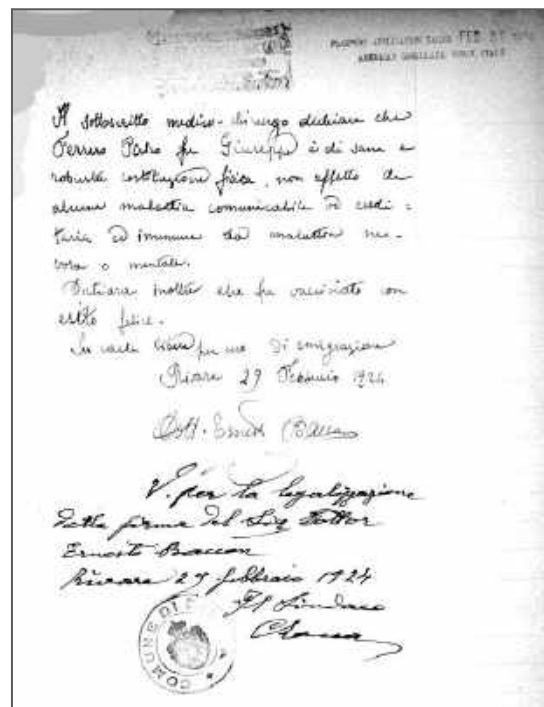 FEB 27
Il sottoscritto medico-chirurgo dichiara che
Ferrero Pietro fu Giuseppe è di sana e
robusta costituzione fisica, non affetto da
alcuna malattia comunicabile od eredi-
taria ed immune da malattia ner-
vosa o mentale.
Dichiara inoltre che fu vaccinato con
esito felice.
In carta libera per uso di emigrazione
Rivara 29 Febbraio 1924
Dott. Ernesto
V. per la legalizzazione
della firma del Sig Dottor
Ernesto
Rivara 29 febbraio 1924
Il Sindaco
COMUNE DI